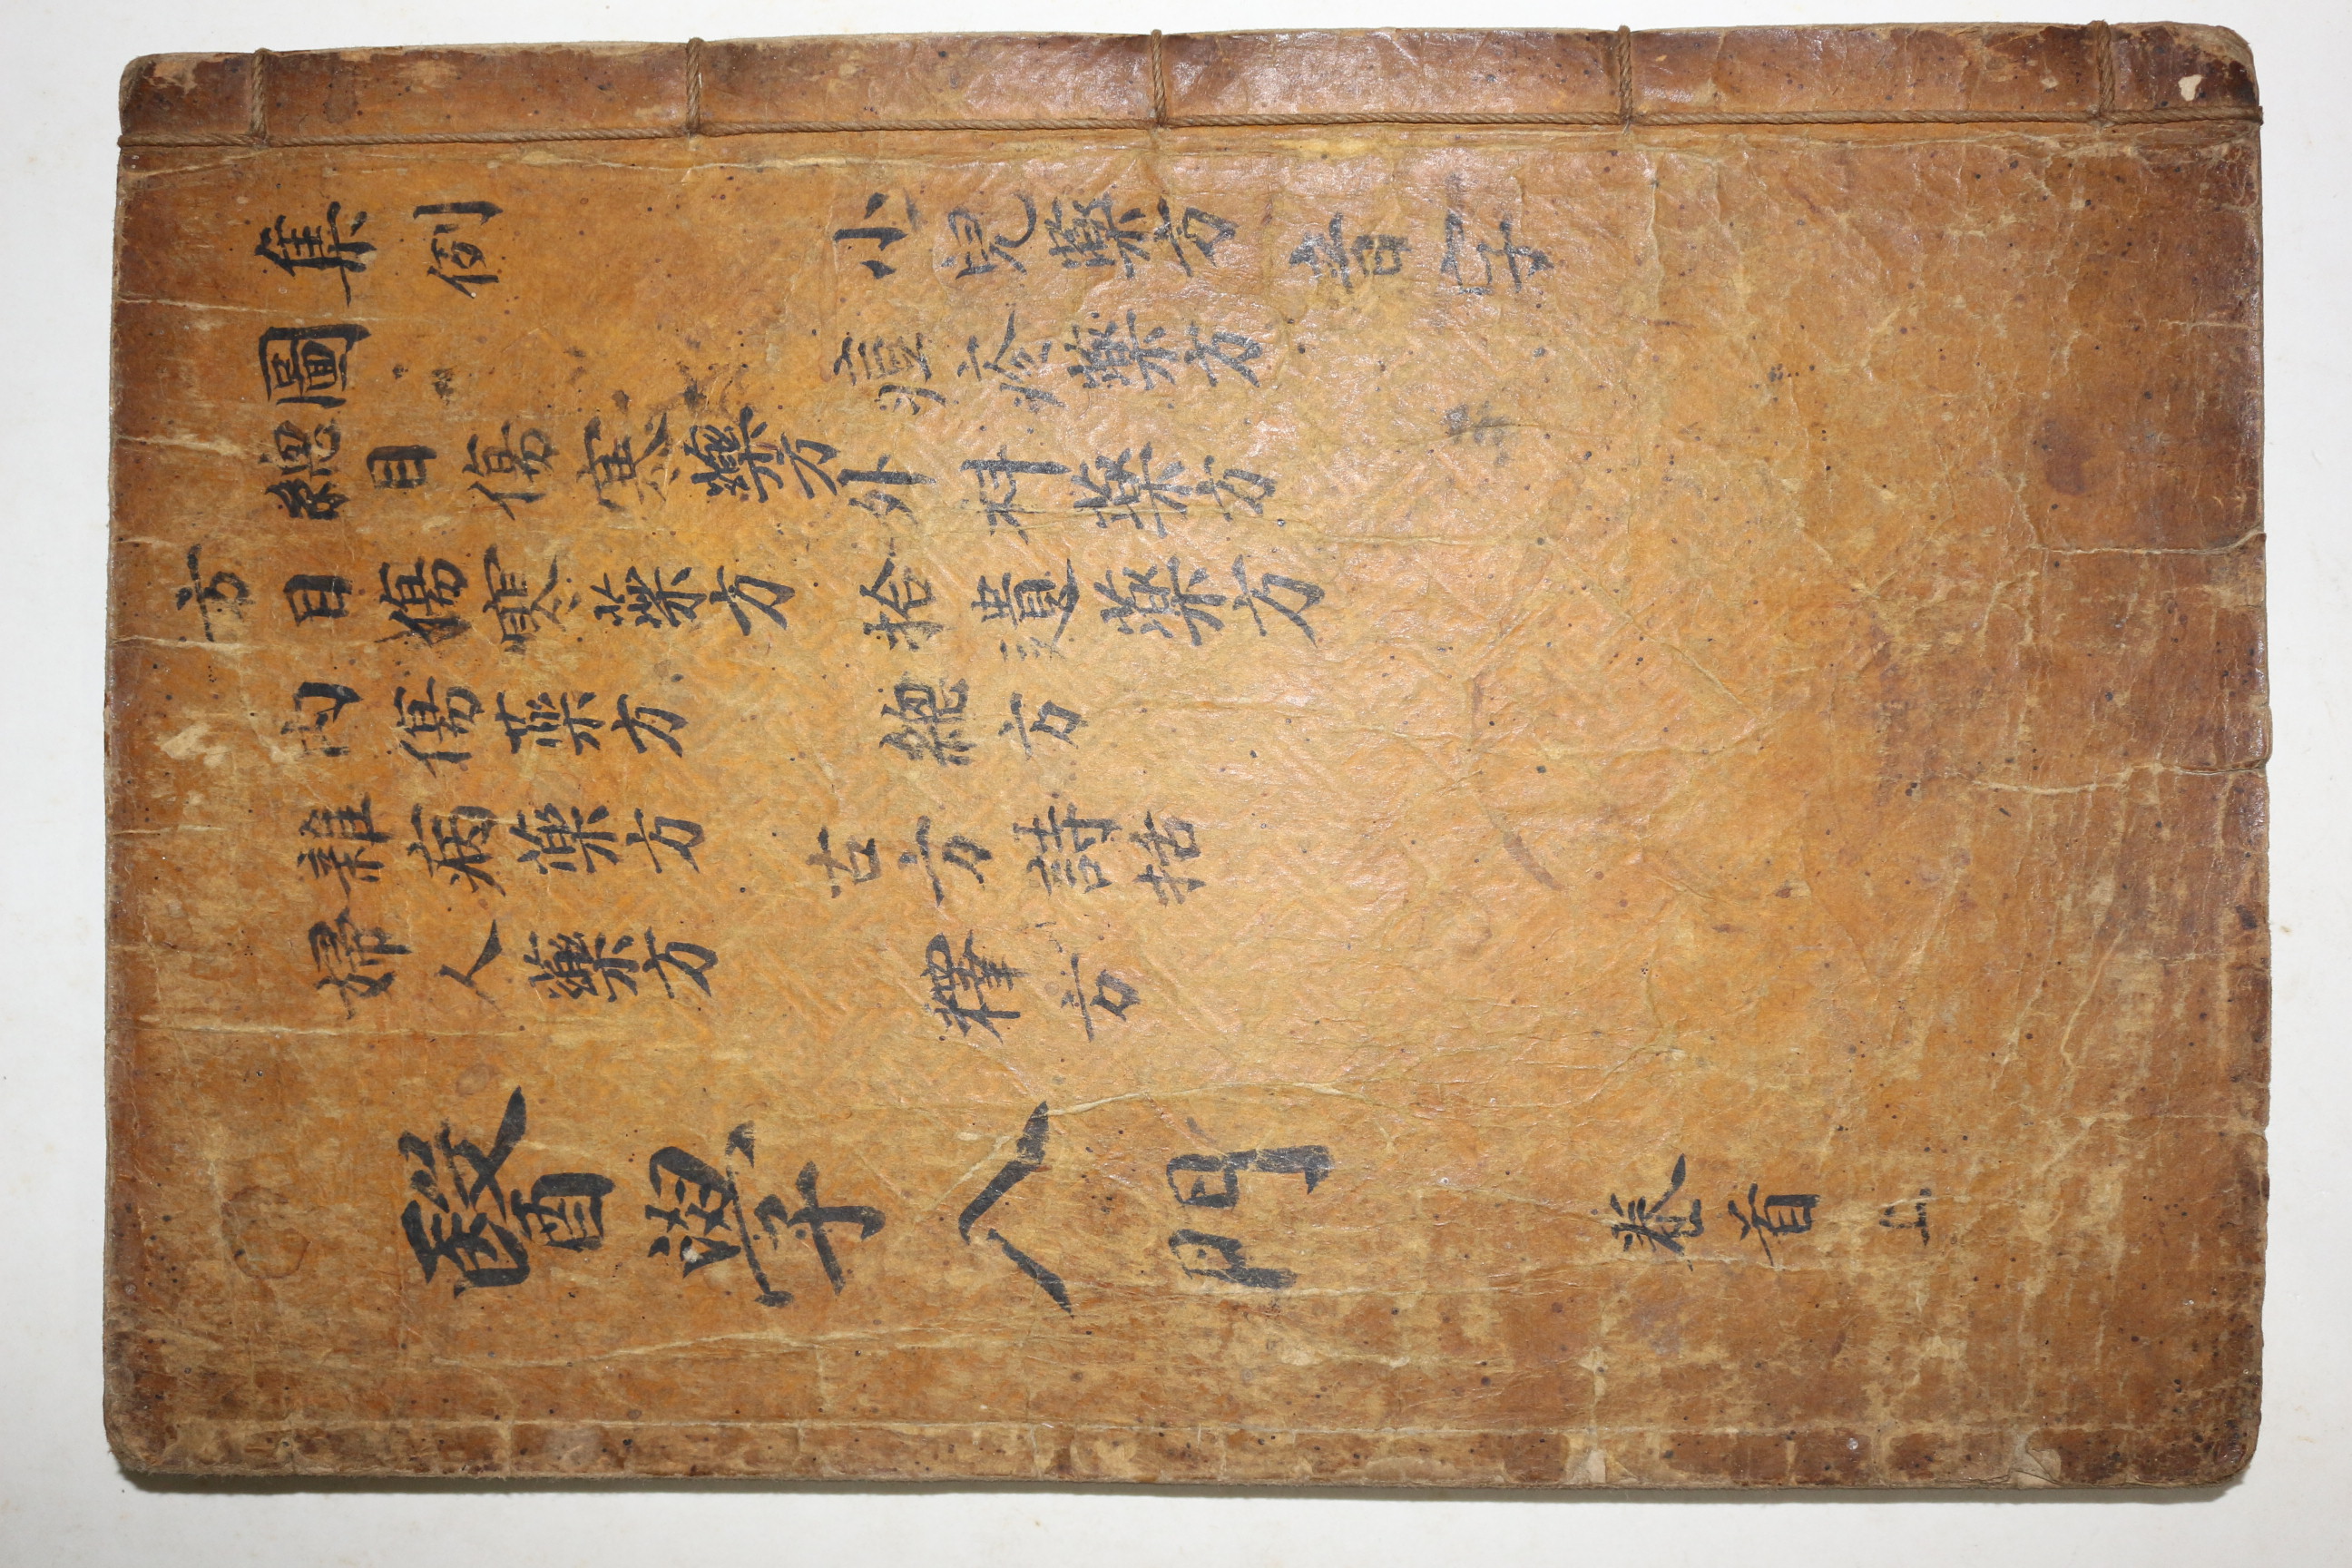 集例 小兒藥方 音字
圖 痘疹藥方
總目傷寒藥方 外科藥方
方目傷寒藥方 拾遺藥方
內傷藥方 總方
雜病藥方 古方詩括
婦人藥方 釋方
醫學入門 卷首 上